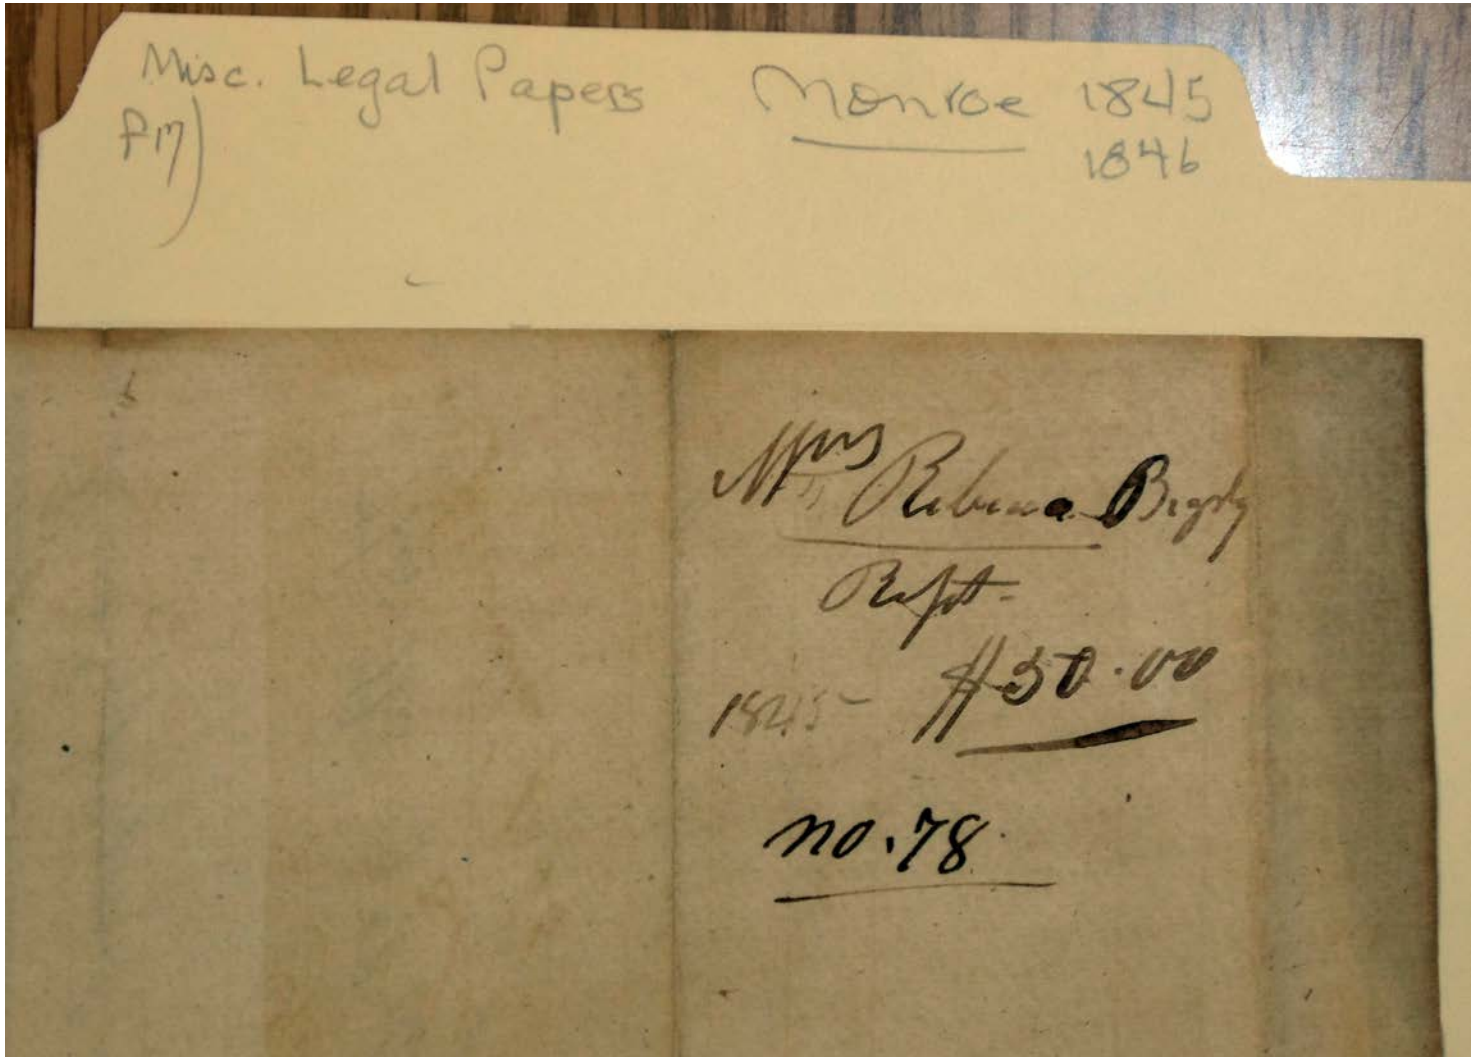 Misc. Legal Papers Monroe 1845
1846
Mrs Rebecca
Rcpt.
1845 $30.00
no. 78